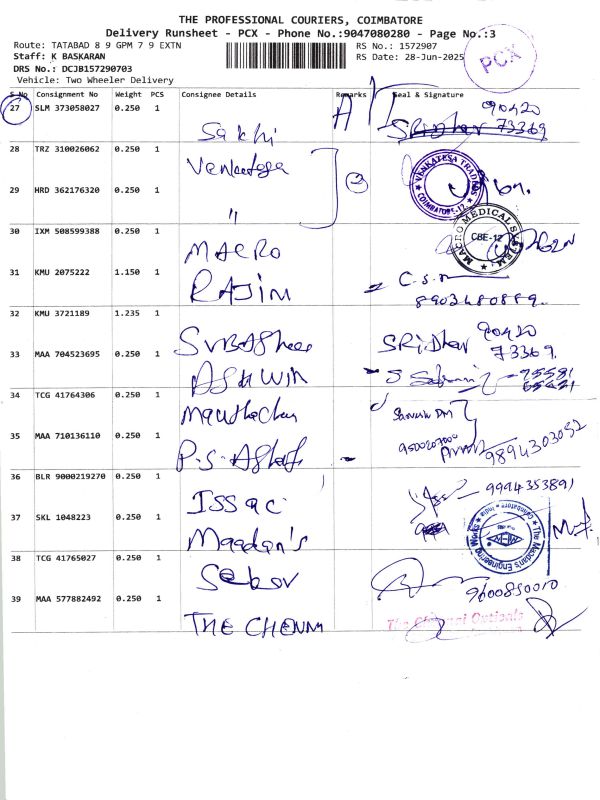 THE PROFESSIONAL COURIERS, COIMBATORE
Delivery Runsheet - PCX - Phone No.:9047080280 - Page No.:3
Route: TATABAD 8 9 GPM 7 9 EXTN
RS No.: 1572907
Staff: K BASKARAN
RS Date: 28-Jun-2025
PCX
DRS No.: DCJB157290703
Vehicle: Two Wheeler Delivery
S No Consignment No Weight PCS Consignee Details Remarks Seal & Signature
27 SLM 373058027 0.250 1 Sakhi SRiDhar 90420 73369
28 TRZ 310026062 0.250 1 Venkatesa
VENKATESA TRADERS COIMBATORE-12
29 HRD 362176320 0.250 1 "
2
30 IXM 508599388 0.250 1 MACRO
MACRO MEDICAL SYSTEM CBE-12
31 KMU 2075222 1.150 1 RAJIM C.S.R
8903480889
32 KMU 3721189 1.235 1 SUBASHree SRiDhar 90420
73369
33 MAA 704523695 0.250 1 ASHWIN
34 TCG 41764306 0.250 1
35 MAA 710136110 0.250 1 P.S. 9894303052
36 BLR 9000219270 0.250 1 ISSAC 9994353891
37 SKL 1048223 0.250 1 Maadan's
The Maadan's Engineering Works Coimbatore India
38 TCG 41765027 0.250 1 9600850010
39 MAA 577882492 0.250 1 THE CHENNAI
The Chennai Opticals